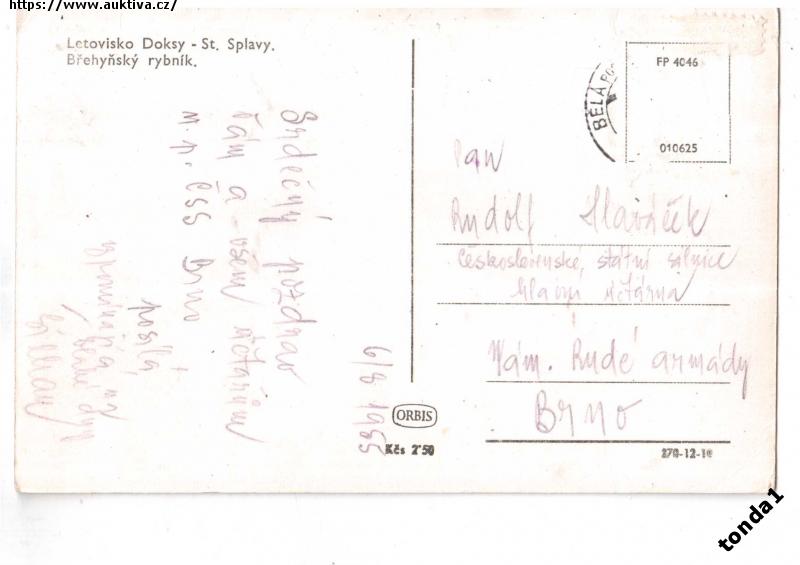 https://www.auktiva.cz/
Letovisko Doksy - St. Splavy.
Břehyňský rybník.
Srdečný pozdrav
Vám a všem účtárům
n. p. ČSS Brno
posílá
6/8 1955
BĚLÁ PO
FP 4046
010625
Pan
Rudolf Hlaváček
Československé, státní silnice
hlavní účtárna
Nám. Rudé armády
Brno
ORBIS
Kčs 2'50
270-12-10
tonda1